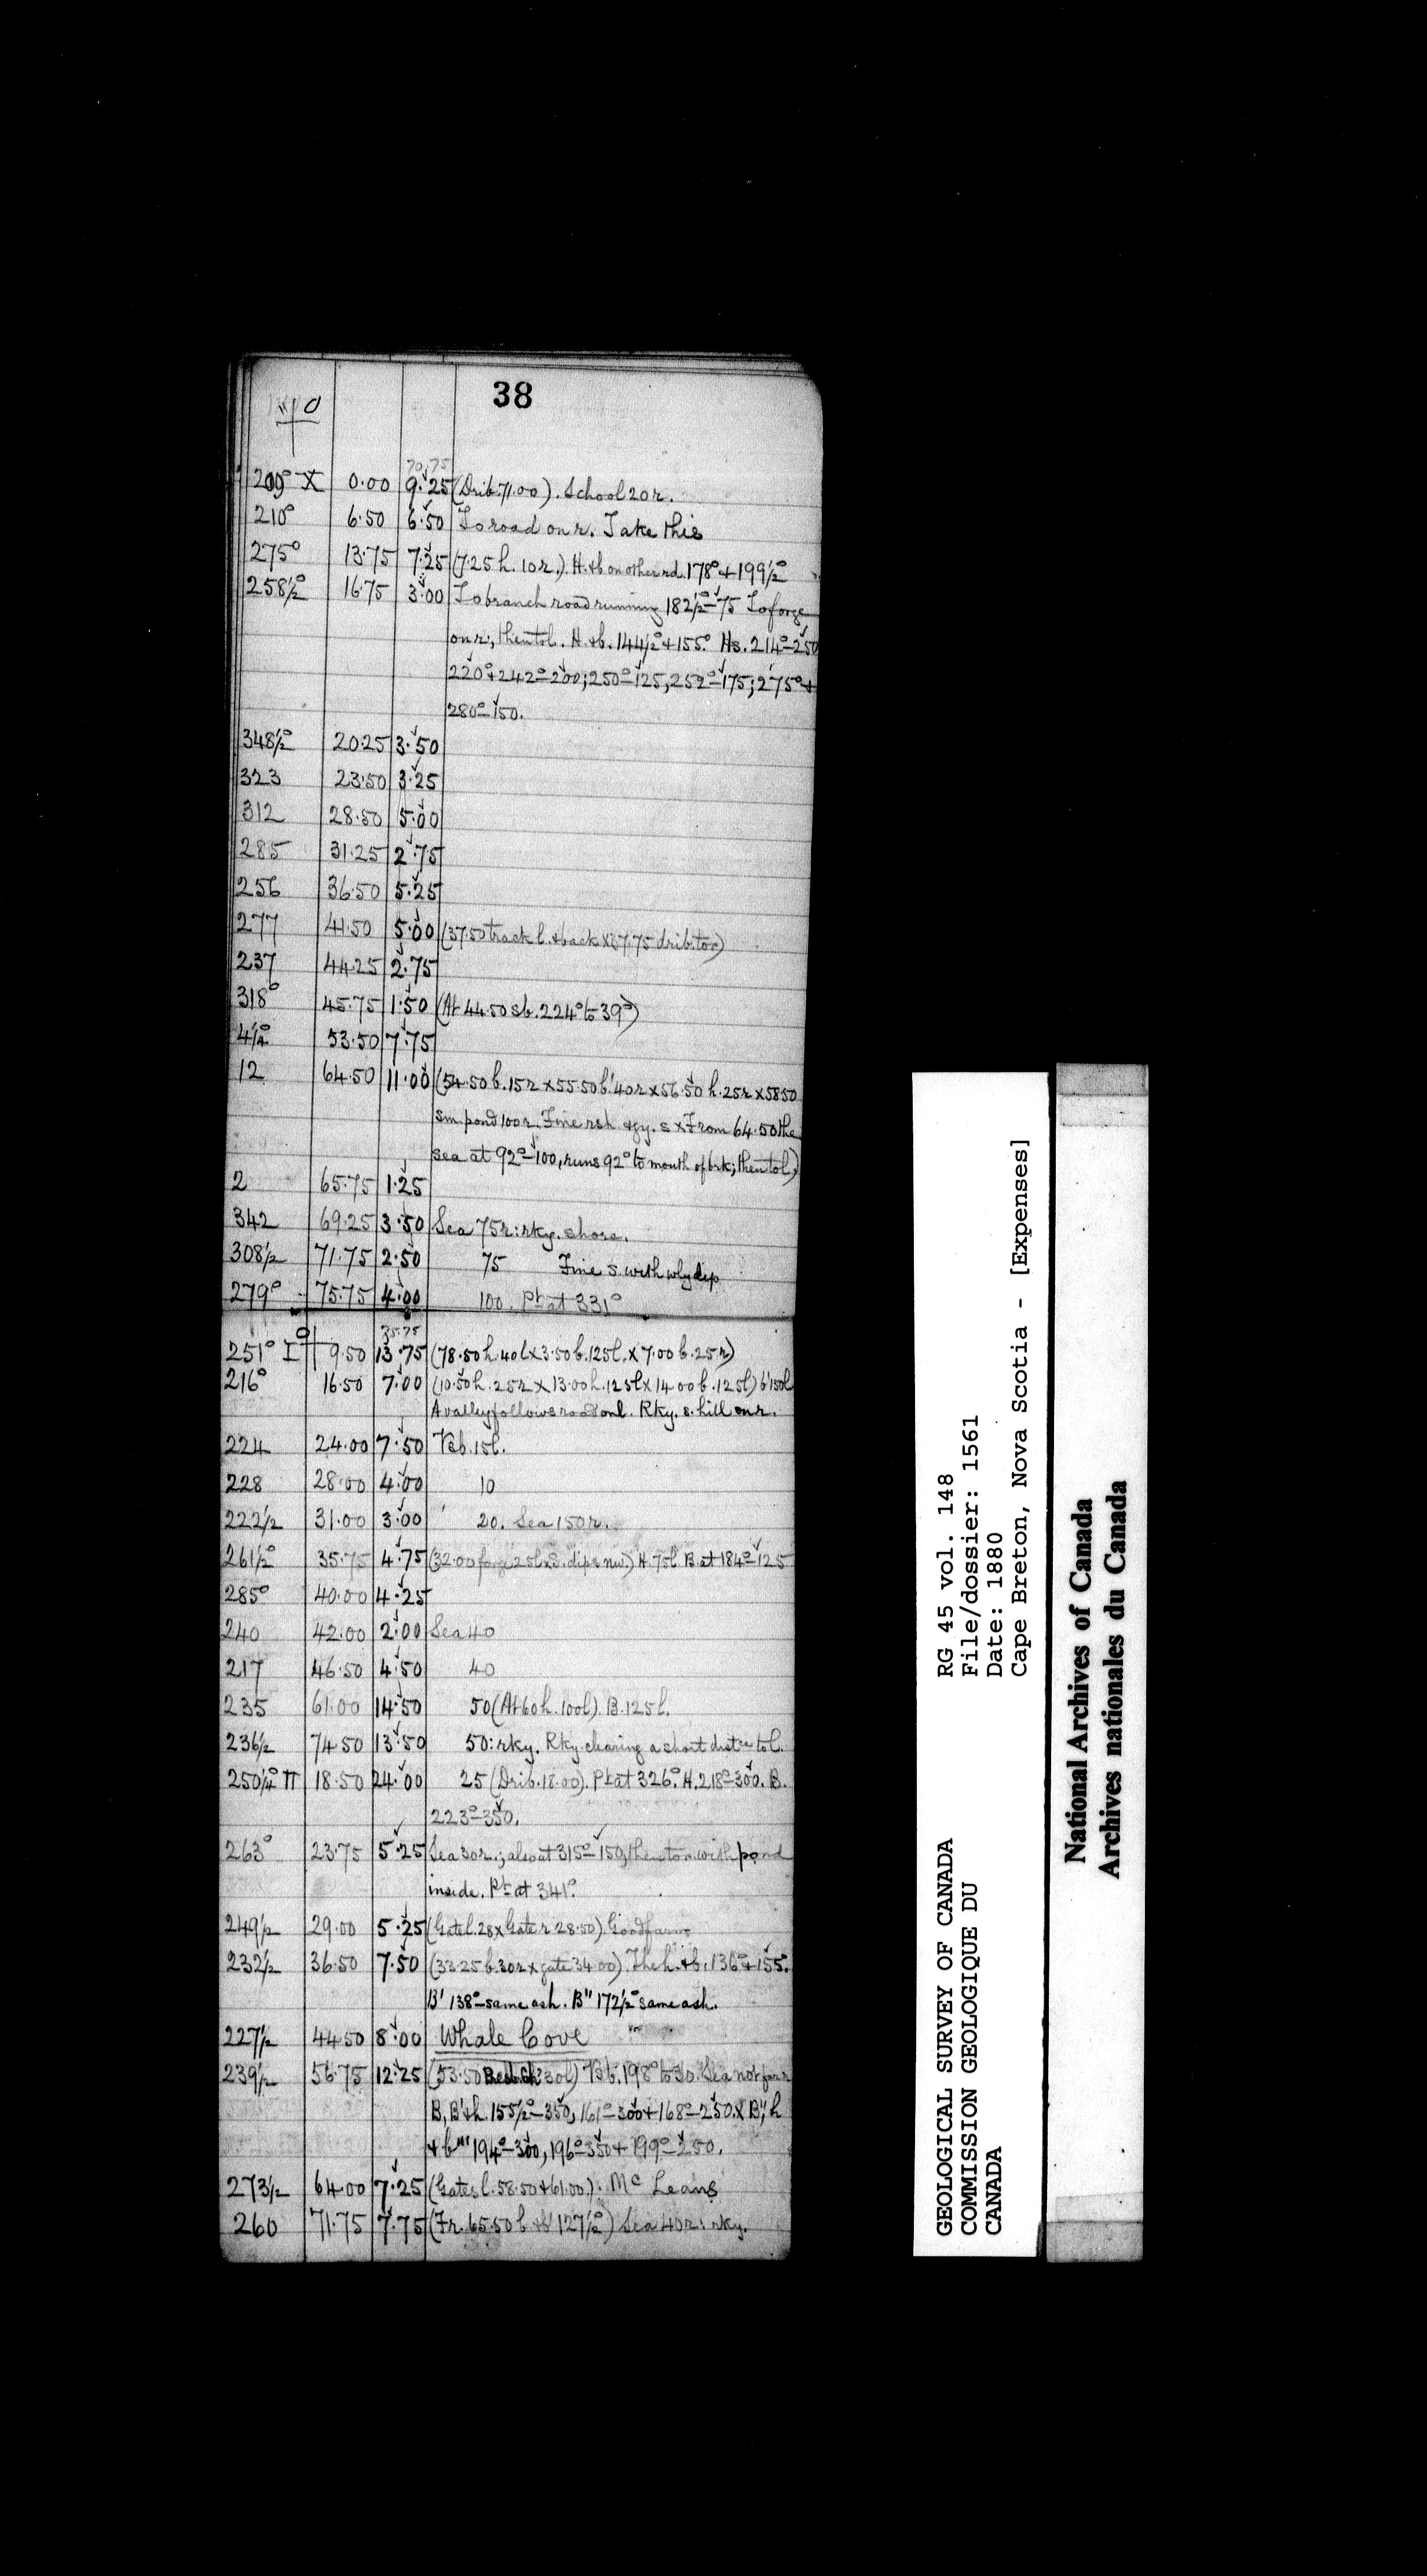 38
70.75
209° X 0.00 9.25 (Drib. 71.00). School 20 r.
210° 6.50 6.50 To road on r. Take this
275° 13.75 7.25 (7.25 h. 10 r.). H. & b. on other rd. 178° & 199½°
258½ 16.75 3.00 To branch road running 182½°–75 To forge
on r., then to l. H. & b. 144½° & 155°. Hs. 214°–250
220° & 242°–200; 250°–125, 252°–175; 275° &
280°–150.
348½° 20.25 3.50
323 23.50 3.25
312 28.50 5.00
285 31.25 2.75
256 36.50 5.25
277 41.50 5.00 (37.50 track l. & back x 37.75 drib. to r)
237 44.25 2.75
318° 45.75 1.50 (At 44.50 sb. 224° to 39°)
4¼° 53.50 7.75
12 64.50 11.00 (54.50 b. 15 r x 55.50 b' 40 r x 56.50 h. 25 r x 58.50
sm pond 100 r. Fine rsh & gy. s x From 64.50 the
sea at 92°–100, runs 92° to mouth of brk; then to l.)
2 65.75 1.25
342 69.25 3.50 Sea 75 r: rky. shore.
308½ 71.75 2.50 75 Fine s. with wly dip
279° 75.75 4.00 100. Pt at 331°
35.75
251° I 9.50 13.75 (78.50 h. 40 l x 3.50 b. 125 l. x 7.00 b. 25 r)
216° 16.50 7.00 (10.50 h. 25 r x 13.00 h. 125 l x 14.00 b. 125 l) b' 150 l
A valley follows road on l. Rky. s. hill on r.
224 24.00 7.50 Vsb. 15 l.
228 28.00 4.00 10
222½ 31.00 3.00 20. Sea 150 r.
261½° 35.75 4.75 (32.00 forge 25 l x S. dips nw.) H. 75 l. B. at 184°–125
285° 40.00 4.25
240 42.00 2.00 Sea 40
217 46.50 4.50 40
235 61.00 14.50 50 (At 60 h. 100 l). B. 125 l.
236½ 74.50 13.50 50: rky. Rky. clearing a short distce to l.
250¼° II 18.50 24.00 25 (Drib. 18.00). Pt at 326°. H. 218°–300. B.
223°–350.
263° 23.75 5.25 Sea 30 r.; also at 315°–150, then to r. with pond
inside. Pt at 341°.
249½ 29.00 5.25 (Gate l. 28 x Gate r 28.50) Good farm
232½ 36.50 7.50 (33.25 b. 30 r x gate 34.00). The h. & b. 136° & 155°.
B' 138°–same as h. B" 172½° same as h.
227½ 44.50 8.00 Whale Cove
239½ 56.75 12.25 (53.50 30 l) Vsb. 198° to 30. Sea not far r
B, B' & h. 155½°–350, 161°–300 & 168°–250. x B", h
& b"' 194°–300, 196°–350 & 199°–250.
273½ 64.00 7.25 (Gates l. 58.50 & 61.00). Mc Leans
260 71.75 7.75 (Fr. 65.50 b 127½°) Sea 40 r: rky.
GEOLOGICAL SURVEY OF CANADA
COMMISSION GEOLOGIQUE DU
CANADA
RG 45 vol. 148
File/dossier: 1561
Date: 1880
Cape Breton, Nova Scotia - [Expenses]
National Archives of Canada
Archives nationales du Canada